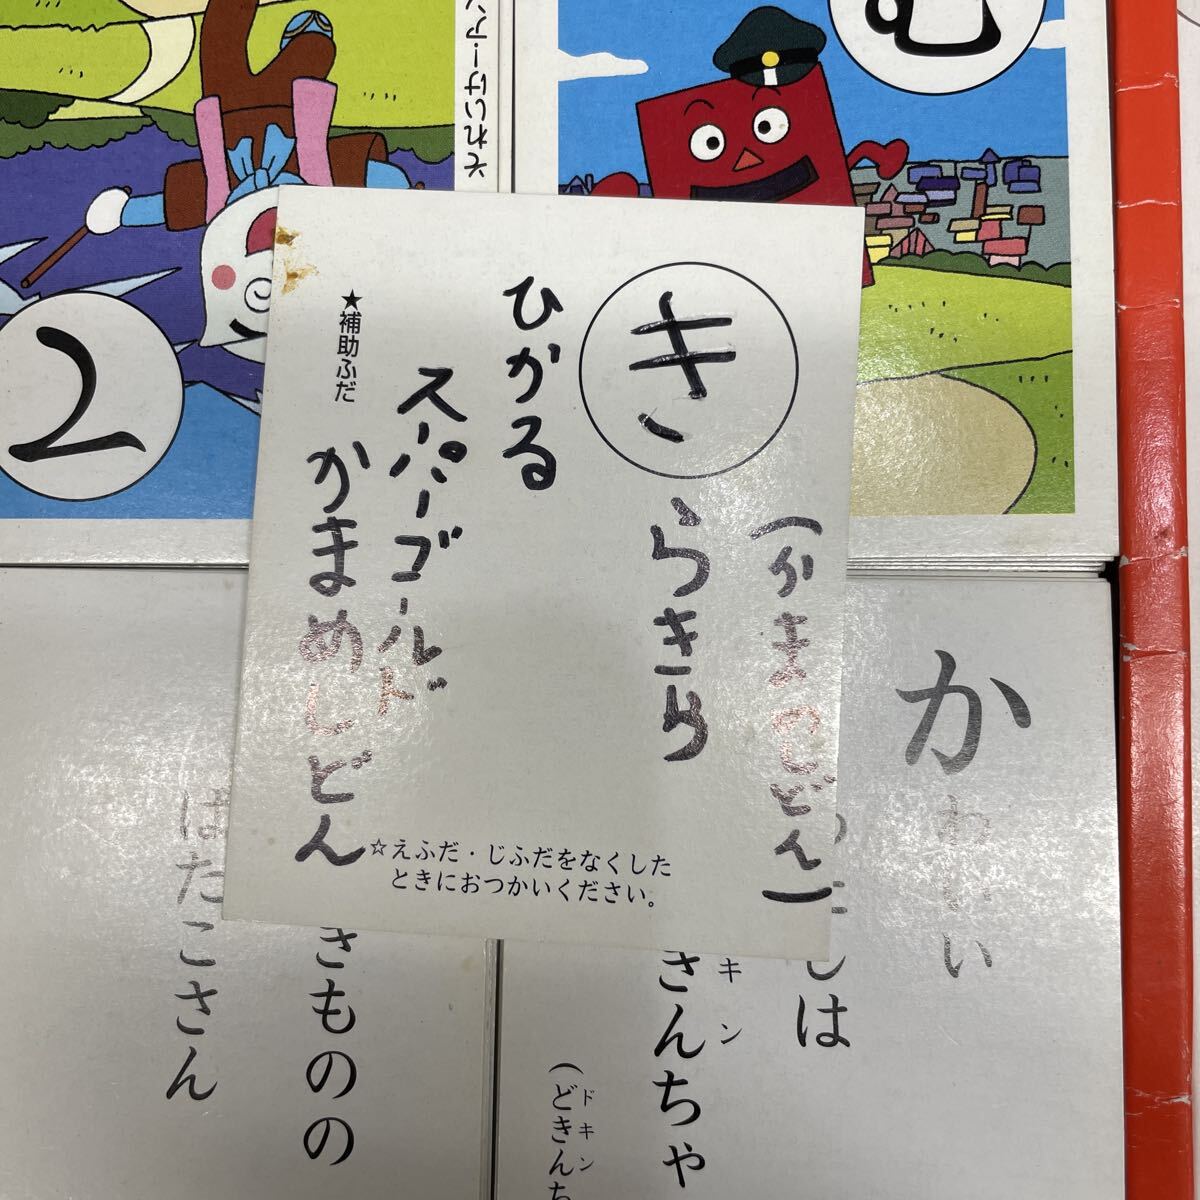 それいけ!アン
む
て
きらきら
(かまめしどん)
ひかる
スーパーゴールド
かまめしどん
★補助ふだ
☆えふだ・じふだをなくした
ときにおつかいください。
か
わいい
しは
キン
きんちゃ
(どきんち
ドキン
きものの
はたこさん